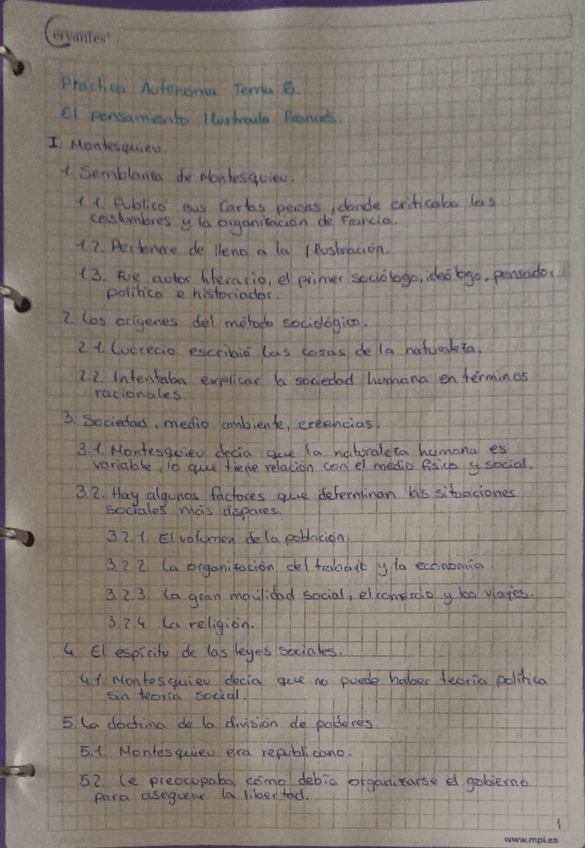 Cervantes
Práctica Autónoma Tema 6.
El pensamiento Ilustrado Francés.
I. Montesquieu.
1. Semblanza de Montesquieu.
1.1. Publicó sus Cartas persas, donde criticaba las
costumbres y la organización de Francia.
1.2. Pertenece de lleno a la Ilustración.
1.3. Fue autor literario, el primer sociólogo, ideólogo, pensador
político e historiador.
2. Los orígenes del método sociológico.
2.1. Lucrecio escribió las cosas de la naturaleza.
2.2. Intentaba explicar la sociedad humana en términos
racionales.
3. Sociedad, medio ambiente, creencias.
3.1. Montesquieu decía que la naturaleza humana es
variable, lo que tiene relación con el medio físico y social.
3.2. Hay algunos factores que determinan las situaciones
sociales más dispares.
3.2.1. El volumen de la población.
3.2.2 La organización del trabajo y la economía.
3.2.3. La gran movilidad social, el comercio y los viajes.
3.2.4. La religión.
4. El espíritu de las leyes sociales.
4.1. Montesquieu decía que no puede haber teoría política
sin teoría social.
5. La doctrina de la división de poderes
5.1. Montesquieu era republicano.
5.2. Le preocupaba cómo debía organizarse el gobierno
para asegurar la libertad.
1
www.mpi.es